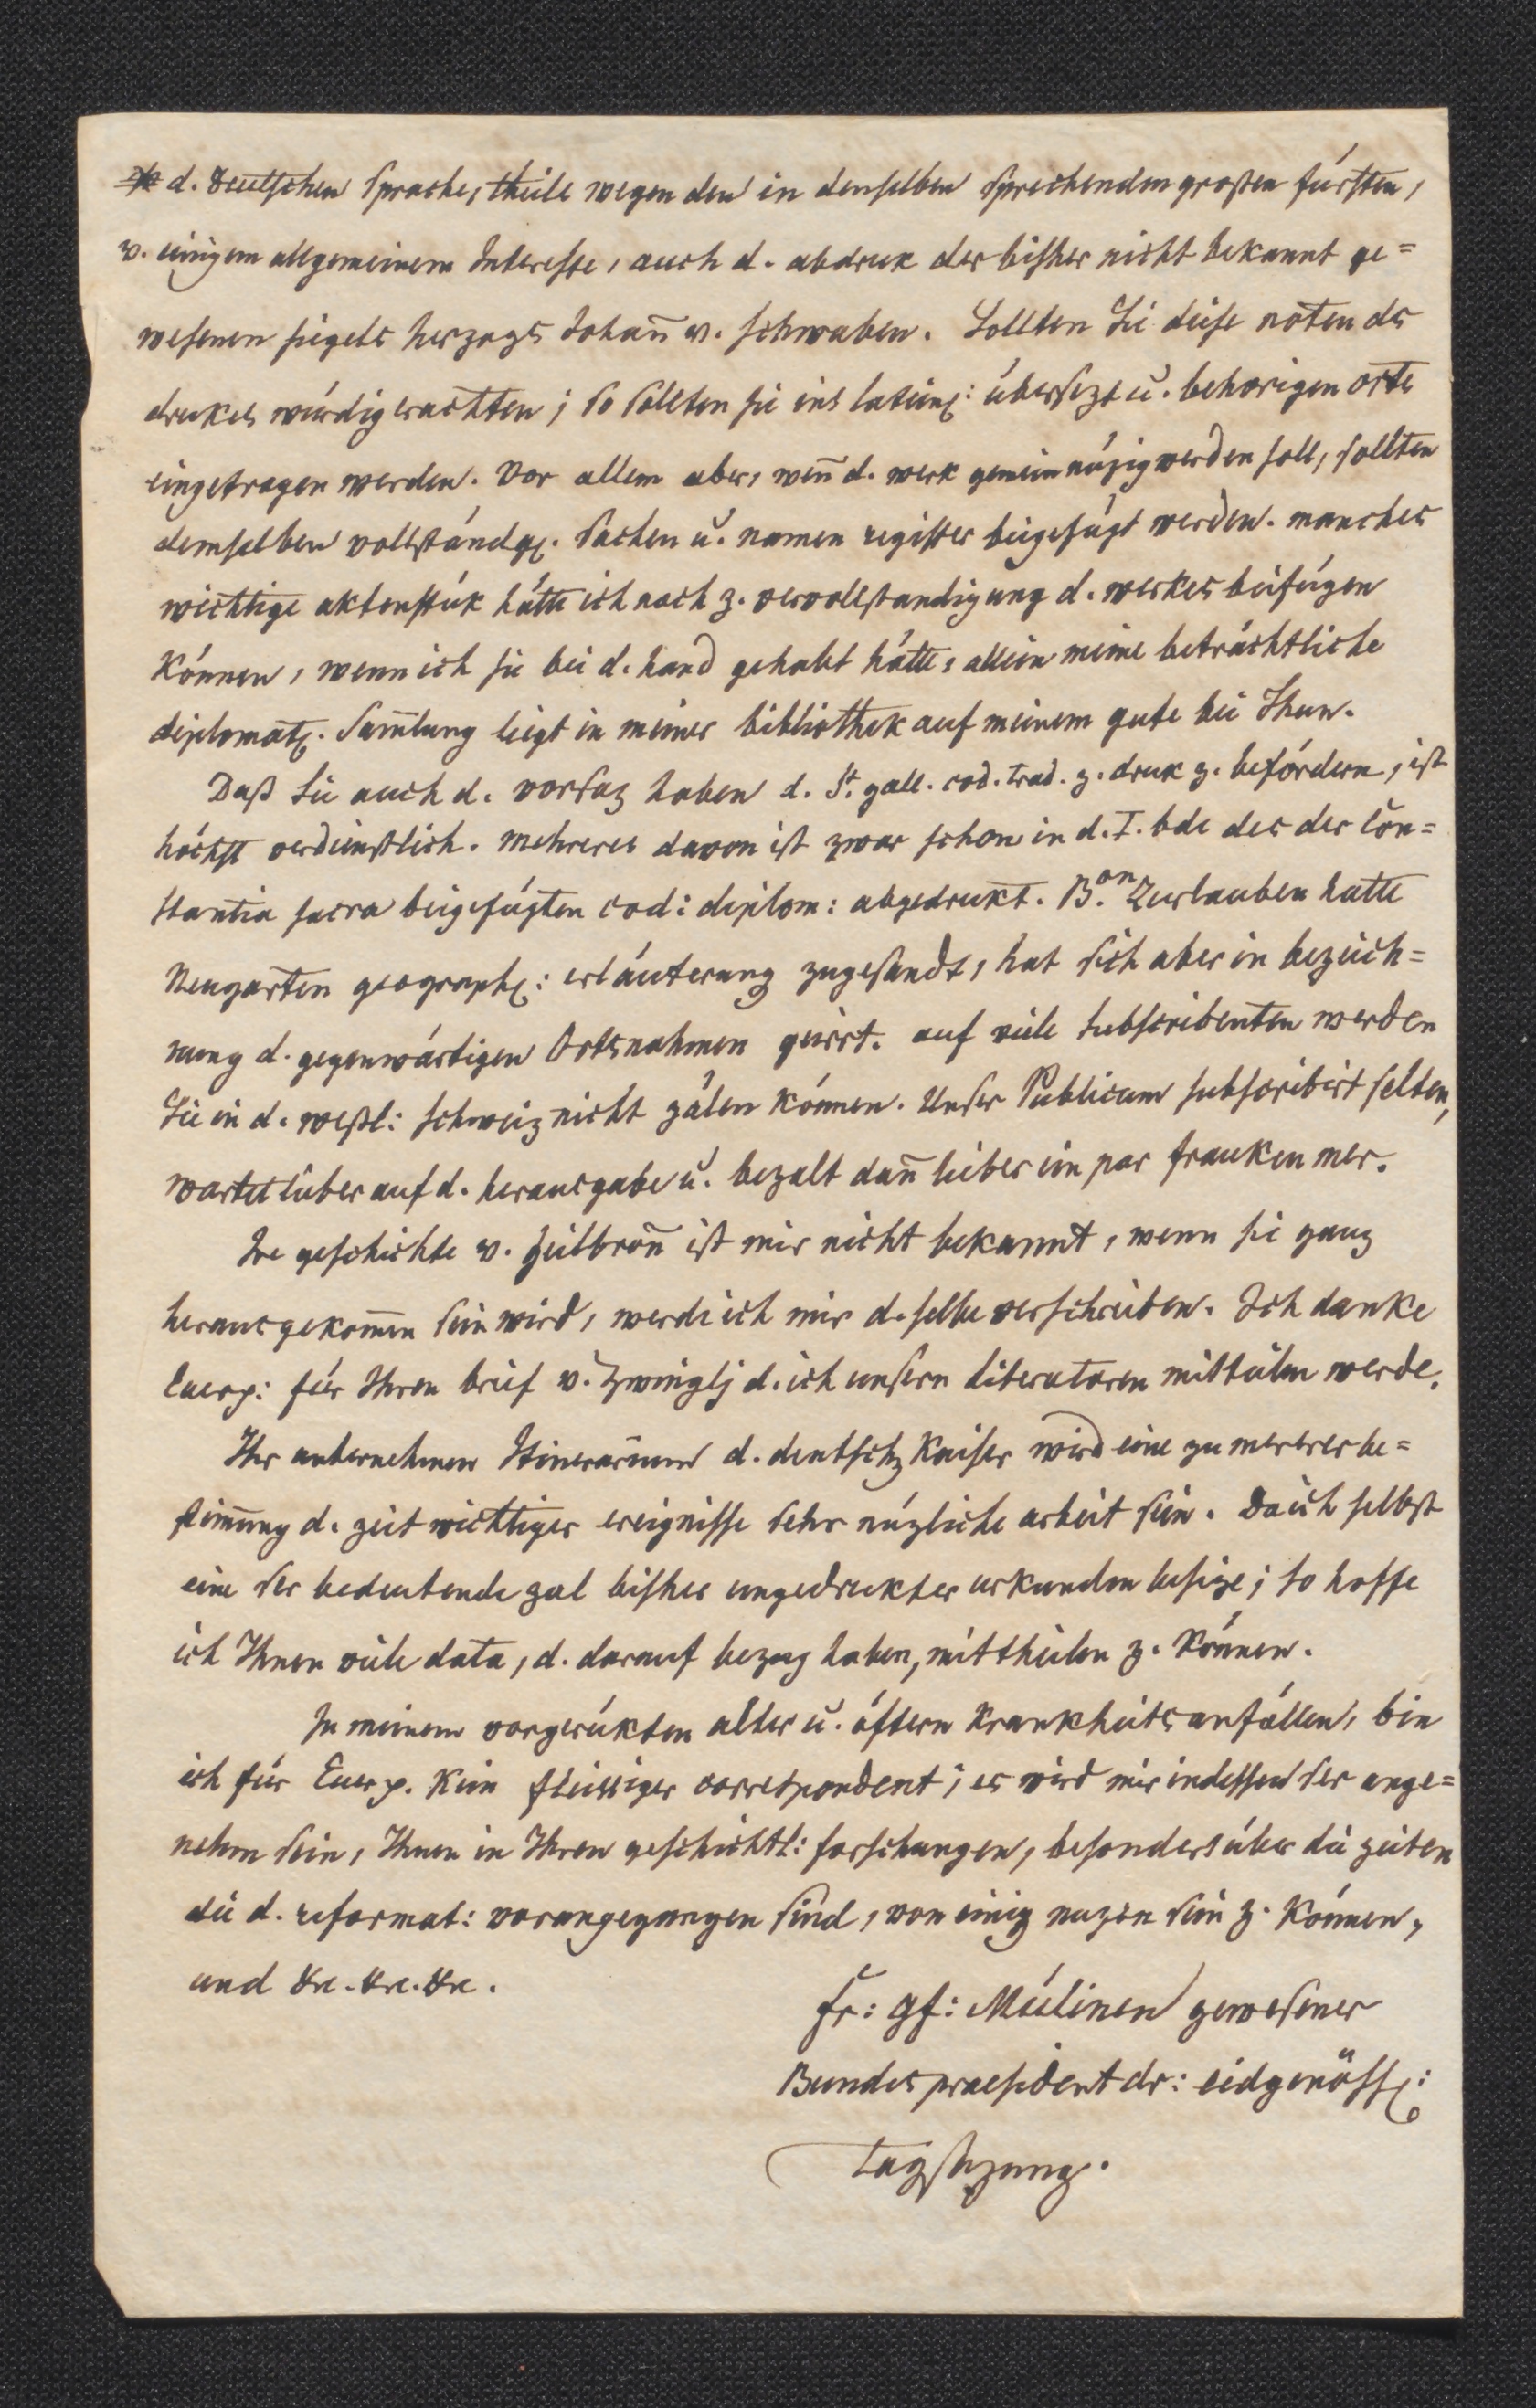 d. deutschen Sprache, theils wegen den in denselben sprechenden großen fürsten,
v. einigem allgemeinem Interesse, auch d. abdruk des bisher nicht bekannt ge=
wesenen siegels herzogs Johañ v. schwaben. Sollten Sie diese noten des
drukes würdig erachten; so sollten sie ins latein: übersezt u. behorigen orts
eingetragen werden. Vor allem aber, weñ d. werk gemeinnüzig werden soll, sollten
demselben vollständg. Sachen u. namen register beigefügt werden. manches
wichtige aktenstük hätte ich noch z. vervollstandigung d. werkes beifügen
können, wenn ich sie bei d. hand gehabt hätte, allein meine beträchtliche
diplomat. Sam̃lung liegt in meiner bibliothek auf meinem gute bei Thun.
Daß Sie auch d. vorsaz haben d. St. gall. cod. trad. z. druk z. befördern, ist
höchst verdienstlich. mehreres davon ist zwar schon in d. I. bde des der Con=
stantia sacra beigefügten cod: diplom: abgedrukt. B.on Zurlauben hatte
Neugarten geograph: erläuterung zugesandt, hat sich aber in bezeich=
nung d. gegenwärtigen Ortsnahmen geirrt. auf viele Subscribenten werden
Sie in d. westl: schweiz nicht zälen können. Unser Publicum subscribirt selten,
wartet lieber auf d. herausgabe u. bezalt dañ lieber ein par franken mer.
Die geschichte v. Heilbroñ ist mir nicht bekannt, wenn sie ganz
herausgekom̃en sein wird, werde ich mir d.selbe verschreiben. Ich danke
Euer: für Ihren brief v. Zwinglj d. ich unsern literatoren mitteilen werde.
Ihr unternehmen Itinerarium d. deutsch Kaiser wird eine zu mererer be=
stim̃ung d. zeit wichtiger ereignisse sehr nüzliche arbeit sein. Da ich selbst
eine ser bedeutende zal bisher ungedrukter urkunden besize; so hoffe
ich Ihnen viele data, d. darauf bezug haben, mittheilen z. können.
In meinem vorgerükten alter u. öftern krankheitsanfällen, bin
ich für Euer. kein fleissiger correspondent; es wird mir indessen ser ange=
nehm sein, Ihnen in Ihren geschichtl: forschungen, besonders über die zeiten
die d. reformat: vorangegangen sind, von einig nuzen sein z. können,
und &c. &c. &c.
Fr: gf: Mülinen gewesener
Bundespraesident dr: eidgenöss:
tagsazung.